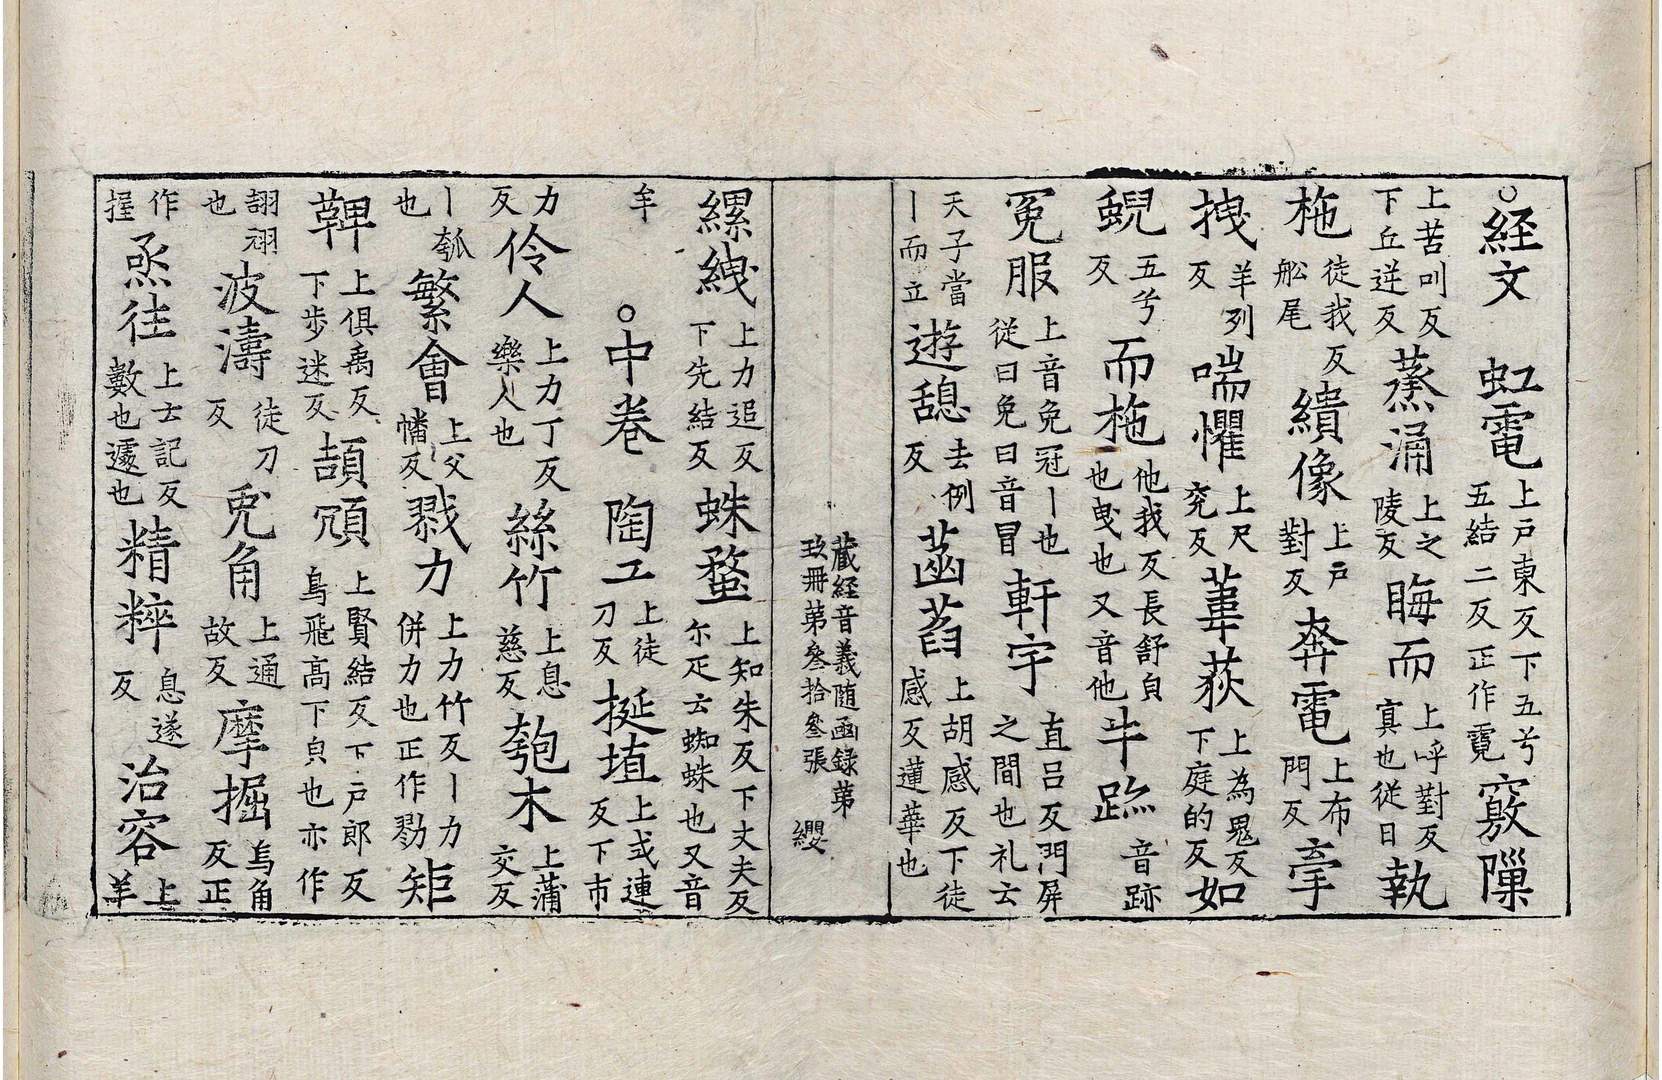 ○経文 虹電上戸東反下五兮五結二反正作霓竅隟
上苦叫反下丘逆反蒸涌上之陵反晦而上呼對反冥也従日執
柂徒我反舩尾繢像上戸對反奔電上布門反牽
拽羊列反喘懼上尺兖反葦荻上為鬼反下庭的反如
蜺五兮反而柂他我反長舒皃也曳也又音他牛跡音跡
冕服上音免冠丨也従曰免曰音冒軒宇直吕反門屏之間也礼云
天子當丨而立遊憩去例反菡萏上胡感反下徒感反蓮華也
蔵経音義随函録第玖冊第叄拾叄張 纓
縲絏上力追反下先結反蛛蝥上知朱反下丈夫反尓疋云蜘蛛也又音
牟 ○中巻 陶工上徒刀反挻埴上式連反下市
力反伶人上力丁反樂人也絲竹上息慈反匏木上蒲交反
丨瓠也繁會上父幡反戮力上力竹反丨力併力也正作勠矩
鞞上俱禹反下步迷反頡頏上賢結反下戸郎反鳥飛髙下皃也亦作
翓翃也波濤徒刀反兎角上通故反摩掘烏角反正
作握烝徃上士記反數也遽也精粹息遂反冶容上羊